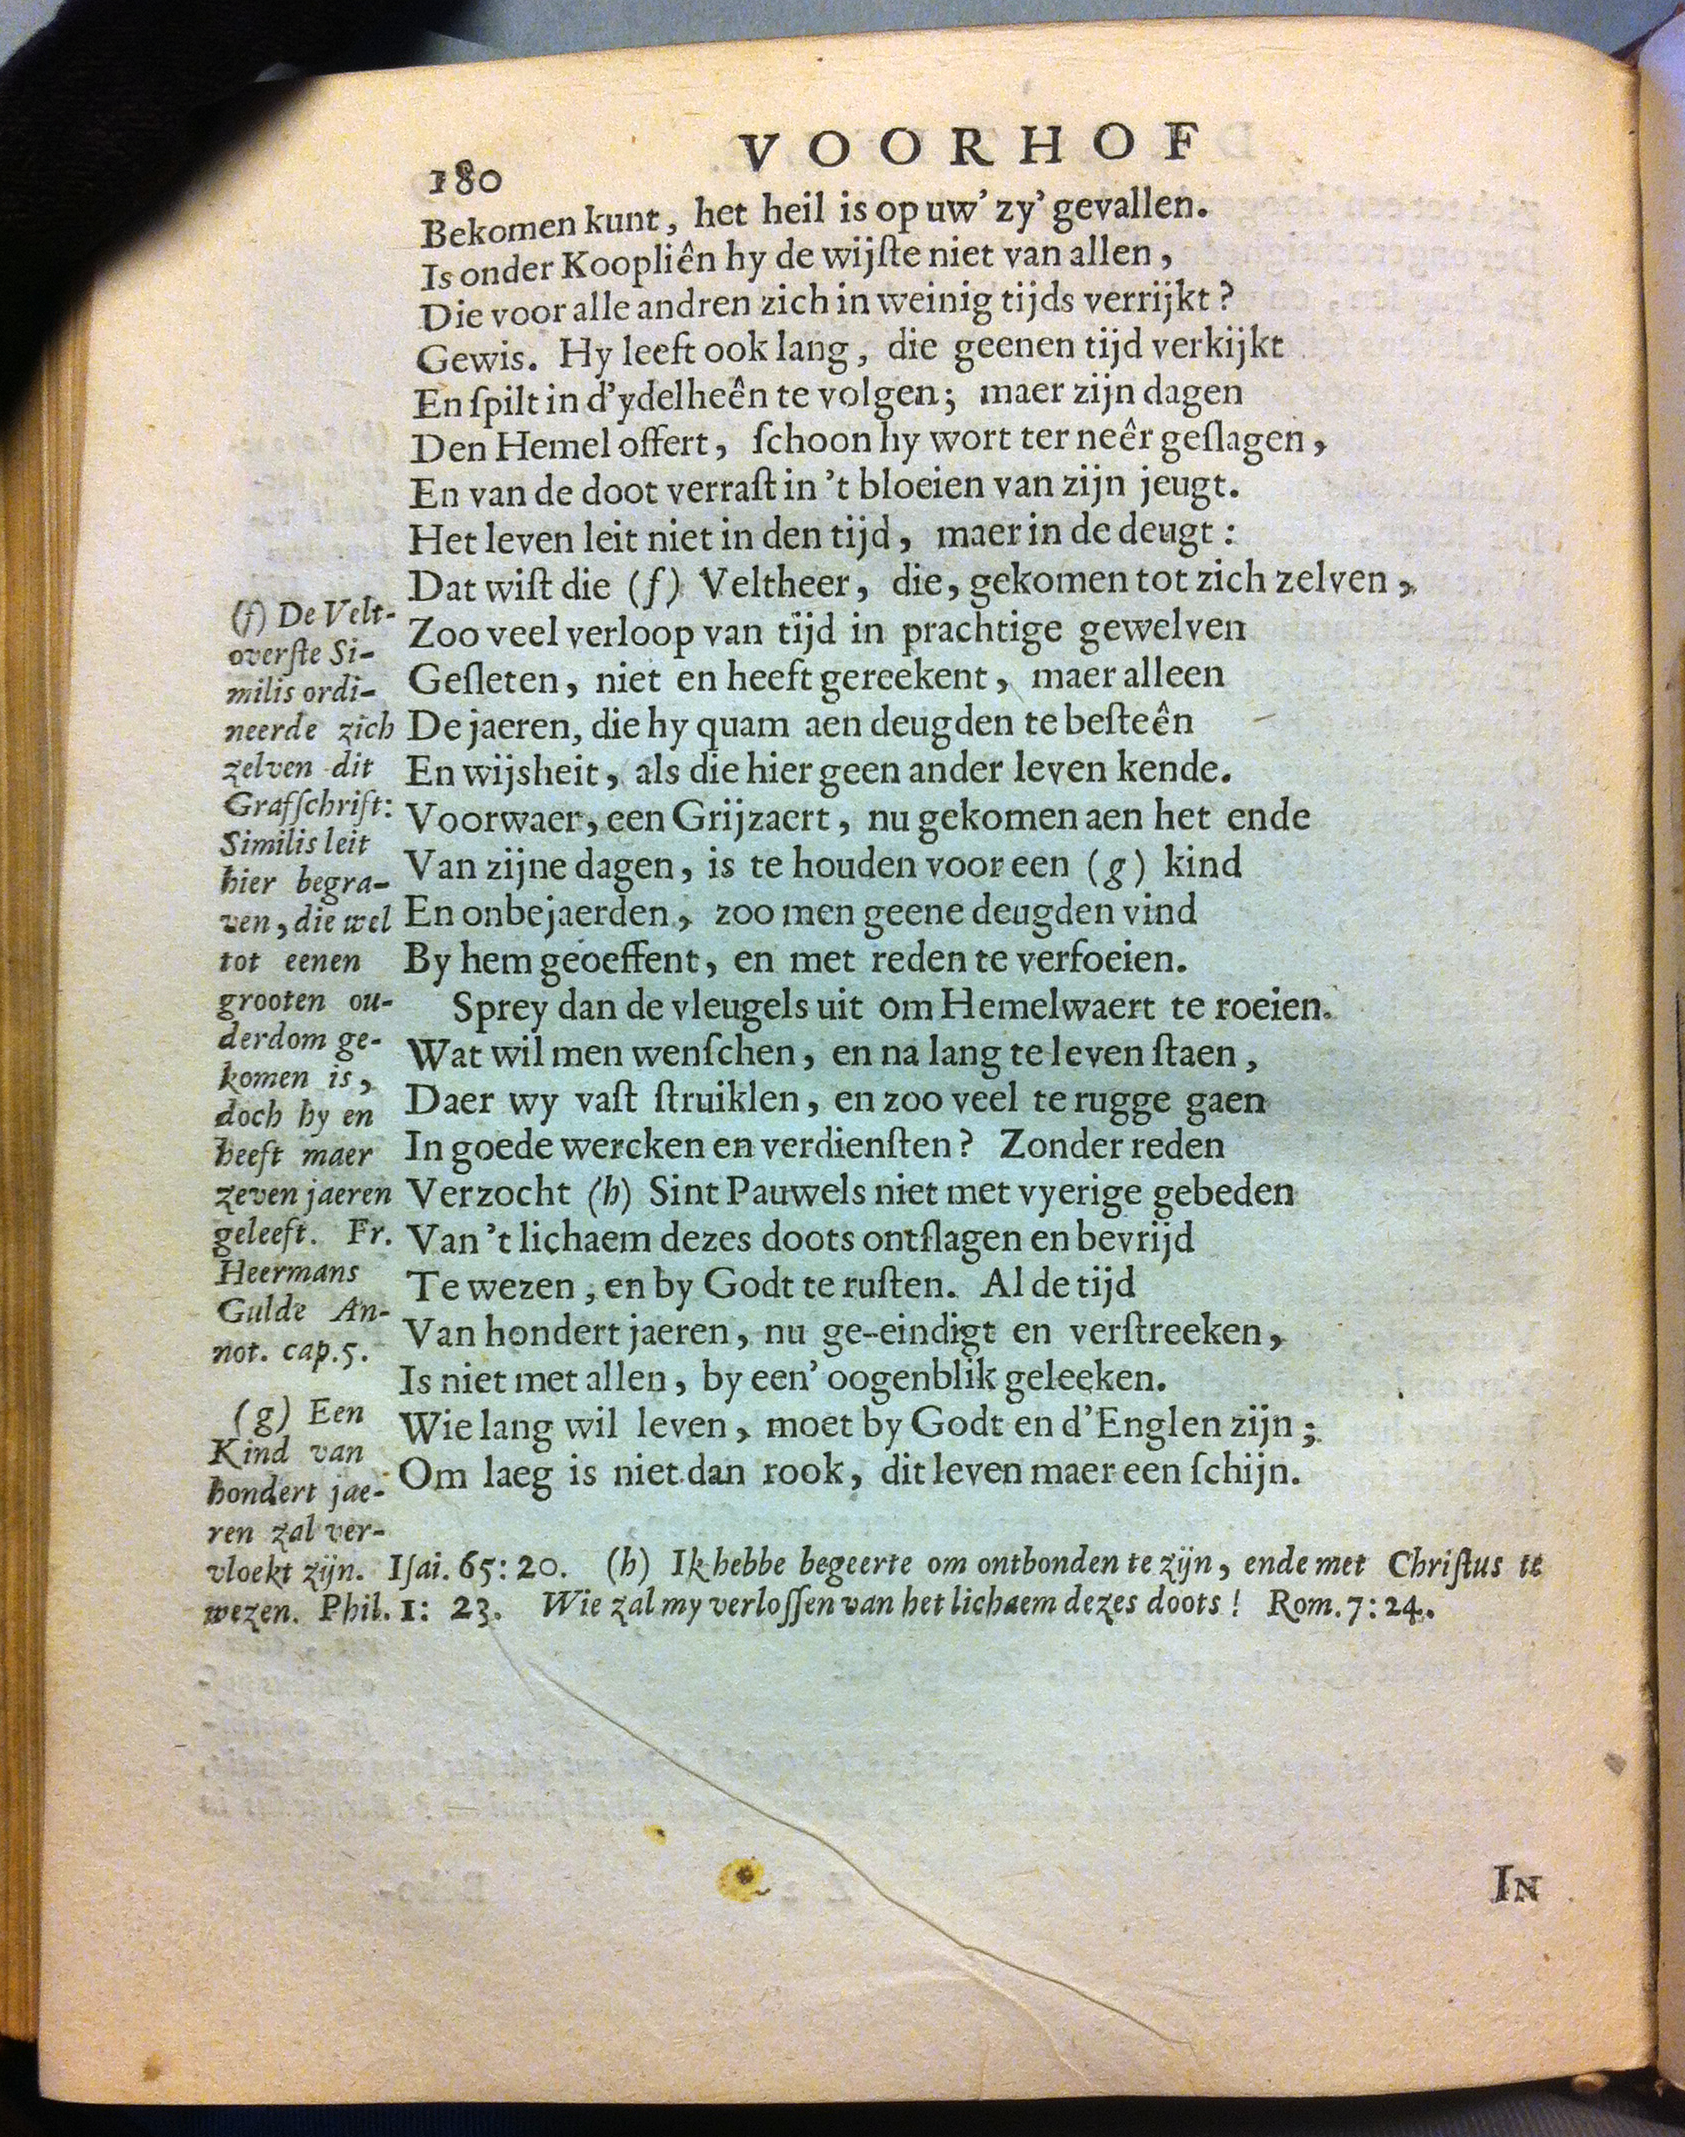 180
VOORHOF
Bekomen kunt, het heil is op uw' zy' gevallen.
Is onder Koopliên hy de wijſte niet van allen,
Die voor alle andren zich in weinig tijds verrijkt?
Gewis. Hy leeft ook lang, die geenen tijd verkijkt
En ſpilt in d'ydelheên te volgen; maer zijn dagen
Den Hemel offert, ſchoon hy wort ter neêr geſlagen,
En van de doot verraſt in 't bloeien van zijn jeugt.
Het leven leit niet in den tijd, maer in de deugt:
Dat wiſt die (f) Veltheer, die, gekomen tot zich zelven,
Zoo veel verloop van tijd in prachtige gewelven
Geſleten, niet en heeft gereekent, maer alleen
De jaeren, die hy quam aen deugden te beſteên
En wijsheit, als die hier geen ander leven kende.
Voorwaer, een Grijzaert, nu gekomen aen het ende
Van zijne dagen, is te houden voor een (g) kind
En onbejaerden, zoo men geene deugden vind
By hem geoeffent, en met reden te verfoeien.
Sprey dan de vleugels uit om Hemelwaert te roeien.
Wat wil men wenſchen, en na lang te leven ſtaen,
Daer wy vaſt ſtruiklen, en zoo veel te rugge gaen
In goede wercken en verdienſten? Zonder reden
Verzocht (h) Sint Pauwels niet met vyerige gebeden
Van 't lichaem dezes doots ontſlagen en bevrijd
Te wezen, en by Godt te ruſten. Al de tijd
Van hondert jaeren, nu ge-eindigt en verſtreeken,
Is niet met allen, by een' oogenblik geleeken.
Wie lang wil leven, moet by Godt en d'Englen zijn;
Om laeg is niet dan rook, dit leven maer een ſchijn.
(f) De Velt-
overſte Si-
milis ordi-
neerde zich
zelven dit
Grafſchrift:
Similis leit
hier begra-
ven, die wel
tot eenen
grooten ou-
derdom ge-
komen is,
doch hy en
heeft maer
zeven jaeren
geleeft. Fr.
Heermans
Gulde An-
not. cap. 5.
(g) Een
Kind van
hondert jae-
ren zal ver-
vloekt zijn. Iſai. 65: 20. (h) Ik hebbe begeerte om ontbonden te zijn, ende met Chriſtus te
wezen. Phil. 1: 23. Wie zal my verloſſen van het lichaem dezes doots! Rom. 7: 24.
IN